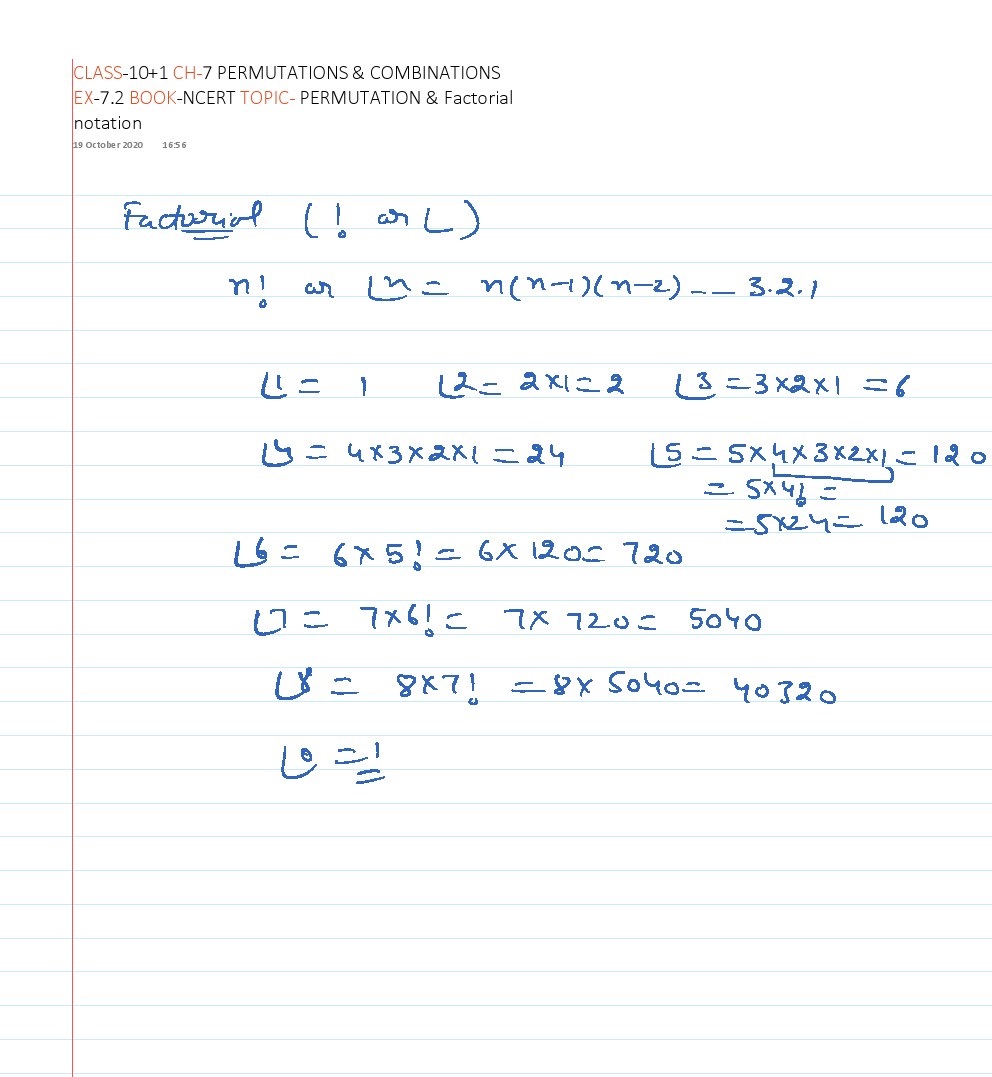 CLASS-10+1 CH-7 PERMUTATIONS & COMBINATIONS
EX-7.2 BOOK-NCERT TOPIC- PERMUTATION & Factorial
notation
19 October 2020 16:56
Factorial ( ! or ∟ )
n! or ∟n = n(n-1)(n-2) -- 3.2.1
∟1 = 1 ∟2 = 2×1=2 ∟3 = 3×2×1 = 6
∟4 = 4×3×2×1 = 24 ∟5 = 5×4×3×2×1 = 120
= 5×4! =
= 5×24 = 120
∟6 = 6×5! = 6×120 = 720
∟7 = 7×6! = 7×720 = 5040
∟8 = 8×7! = 8×5040 = 40320
∟0 = 1